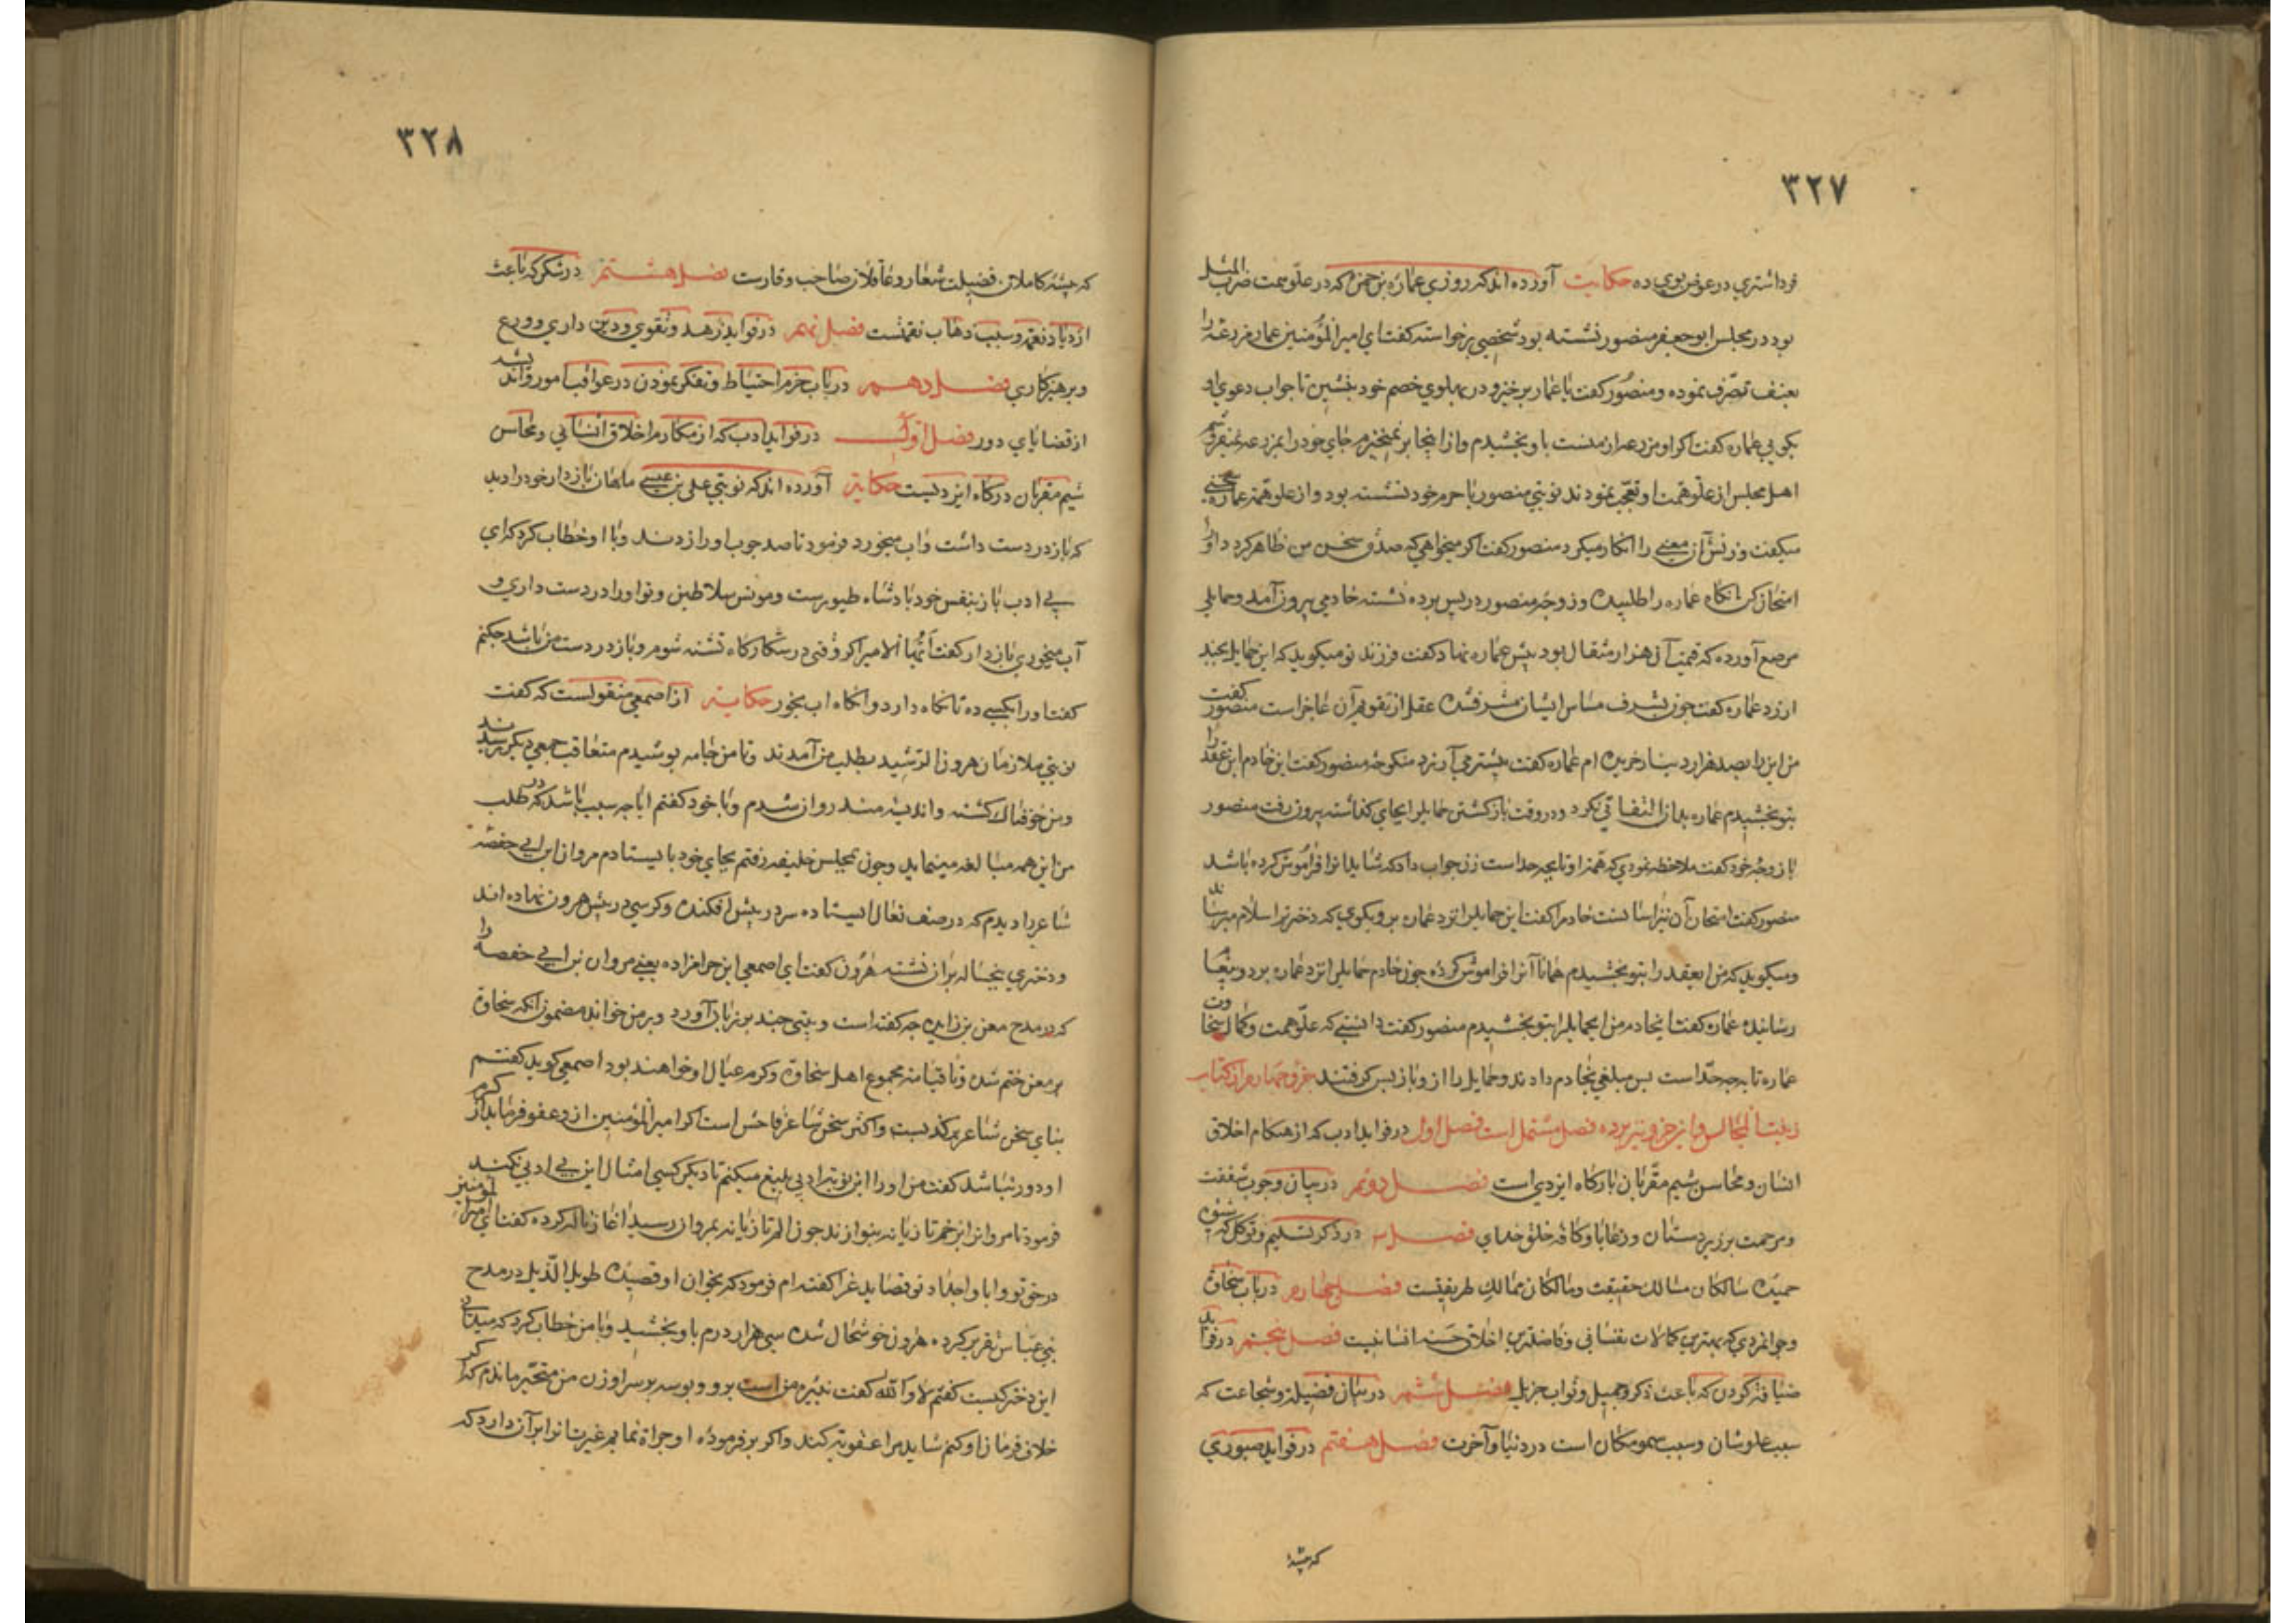 ۳۲۷
فردا شتري در عوض بوي ده حکایت آورده اند که روزي عماره بن حمزه که در علو همت ضرب المثل
بود در مجلس ابو جعفر منصور نشسته بود شخصي برخواسته گفت اي امیر المؤمنین عمار مزرعهٔ مرا
بعنف تصرّف نموده و منصور گفت یا عمار برخیز و در پهلوي خصم خود بنشین تا جواب دعوي او
بگویي عماره گفت اکر او مزرعه از منست باو بخشیدم و از اینجا بر نمیخیزم جاي خود را بمزرعه نمیفروشم
اهل مجلس از علو همت او تعجّب نمودند نوبتي منصور با حرم خود نشسته بود و از علو همت عماره سخني
میکفت و زنش آن معني را انکار میکرد منصور کفت اکر میخواهي که صدق سخن من ظاهر کردد او را
امتحان کن انکاه عماره را طلبیده و زوجهٔ منصور در پس پرده نشسته خادمي بیرون آمد و حمایلي
مرصع آورده که قیمت آن هزار مثقال بود پیش عماره نهاد کفت فرزند تو میکوید که این حمایل بچند
ارزد عماره کفت چون بشرف مساس ایشان مشرف شده عقل از تقویم آن عاجز است منصور کفت
من این را بصد هزار دینار خریده ام عماره کفت بیشتر مي آرزد منکوحهٔ منصور کفت این خادم این عقد را
بتو بخشیدم عماره بدان التفاتي نکرد و در وقت بازکشتن حمایل را بجاي کذاشته بیرون رفت منصور
با زوجهٔ خود کفت ملاحظه نمودي که همت او تا بچه حد است زن جواب داد که شاید انرا فراموش کرده باشد
منصور کفت امتحان آن نیز اسانست خادم را کفت این حمایل را نزد عماره بر و بکوي که دختر ترا سلام میرساند
و میکوید که من این عقد را بتو بخشیدم همانا آنرا فراموش کردهٔ چون خادم حمایل را نزد عماره برد و پیغام
رسانیده عماره کفت ایخادم من این حمایل را بتو بخشیدم منصور کفت دانستي که علو همت و کمال سخاوت
عماره تا بچه حدّ است پس مبلغي بخادم دادند و حمایل را از و باز پس کرفتند جزو چهارم از کتاب
زینت المجالس و این جزو نیز بر ده فصل مشتمل است فصل اول در فواید ادب که از مکارم اخلاق
انسان و محاسن شیم مقرّبان بارکاه ایزدي است فصل دویم در بیان وجوب شفقت
و مرحمت بر زیردستان و رعایا و کافه خلق خداي فصل سه در ذکر تسلیم و توکل که شیوهٔ
حمیدهٔ سالکان مسالک حقیقت و مالکان ممالک طریقتست فصل چهارم در باب سخاوت
و جوانمردي که بهترین کمالات نفساني و فاضلترین اخلاق حسنه انسانیت فصل پنجم در فواید
ضیافت کردن که باعث ذکر جمیل و ثواب جزیل فصل ششم در بیان فضیلت و شجاعت که
سبب علو شان و سبب سمو مکان است در دنیا و آخرت فصل هفتم در فواید صبوري
که پیشهٔ
۳۲۸
که پیشهٔ کاملان فضیلت شعار و عاقلان صاحب وقارست فصل هشتم در شکر که باعث
ازدیاد نعمت و سبب ذهاب نقمتست فصل نهم در فواید زهد و تقوي و دین داري و ورع
و پرهیزکاري فصل دهم در باب حزم احتیاط و تفکر نمودن در عواقب امور و اندیشه
از قضایاي دور فصل اوّل در فواید ادب که از مکارم اخلاق انساني و محاسن
شیم مقربان درکاه ایزدیست حکایت آورده اند که نوبتي علي بن عیسي ماهان بازدار خود را دید
که باز در دست داشت و اب میخورد فرمود تا صد چوب او را زدند و با او خطاب کرد که اي
بي ادب باز بنفس خود بادشاه طیورست و مونس سلاطین و تو او را در دست داري و
آب میخوري بازدار کفت ایّها الامیر اکر وقتي در شکارکاه تشنه شوم و باز در دست من باشد چکنم
کفت او را بکسي ده تا نکاه دارد و انکاه اب بخور حکایت از اصمعي منقولست که کفت
نوبتي ملازمان هرون الرشید بطلب من آمدند و تا من جامه پوشیدم متعاقب جمعي دیکر رسیدند
و من خوفناک کشته و اندیشه مند روان شدم و با خود کفتم ایا چه سبب باشد که در طلب
من این همه مبالغه مینماید و چون بمجلس خلیفه رفتم بجاي خود بایستادم مروان ابن ابي حفصه
شاعر را دیدم که در صف نعال ایستاده سر در پیش افکنده و کرسي در پیش هرون نهاده اند
و دختري پنجساله بران نشسته هرون کفت اي اصمعي این حرامزاده یعني مروان بن ابي حفصه را
که در مدح معن بن زایده چه کفته است و بیتي چند بر زبان آورد و بر من خواند مضمون انکه سخاوت
بر معن ختم شده و تا قیامت مجموع اهل سخاوة و کرم عیال او خواهند بود اصمعي کوید کفتم
بناي سخن شاعر بر کذبست و اکثر سخن شاعر فاحش است اکر امیر المؤمنین از و عفو فرماید از کرم
او دور نباشد کفت من او را این نوبت ادبي بلیغ میکنم تا دیکر کسي امثال این بي ادبي نکند
فرمود تا مروان را بزخم تازیانه بنوازند چون الم تازیانه بمروان رسید اغاز ناله کرده کفت اي امیر المومنین
در حق تو و ابا و اجداد تو قصاید غرّا کفته ام فرمود که بخوان او قصیدهٔ طویل الذّیل در مدح
بني عبّاس تقریر کرده هرون خوشحال شده سي هزار درم باو بخشید و با من خطاب کرد که میداني
این دختر کیست کفتم لا والله کفت نبیرهٔ من است برو و بوسه بر سر او زن من متحیّر ماندم که اکر
خلاف فرمان او کنم شاید مرا عقوبت کند و اکر بر فرموده او جراة نمایم غیرت انرا بر آن دارد که